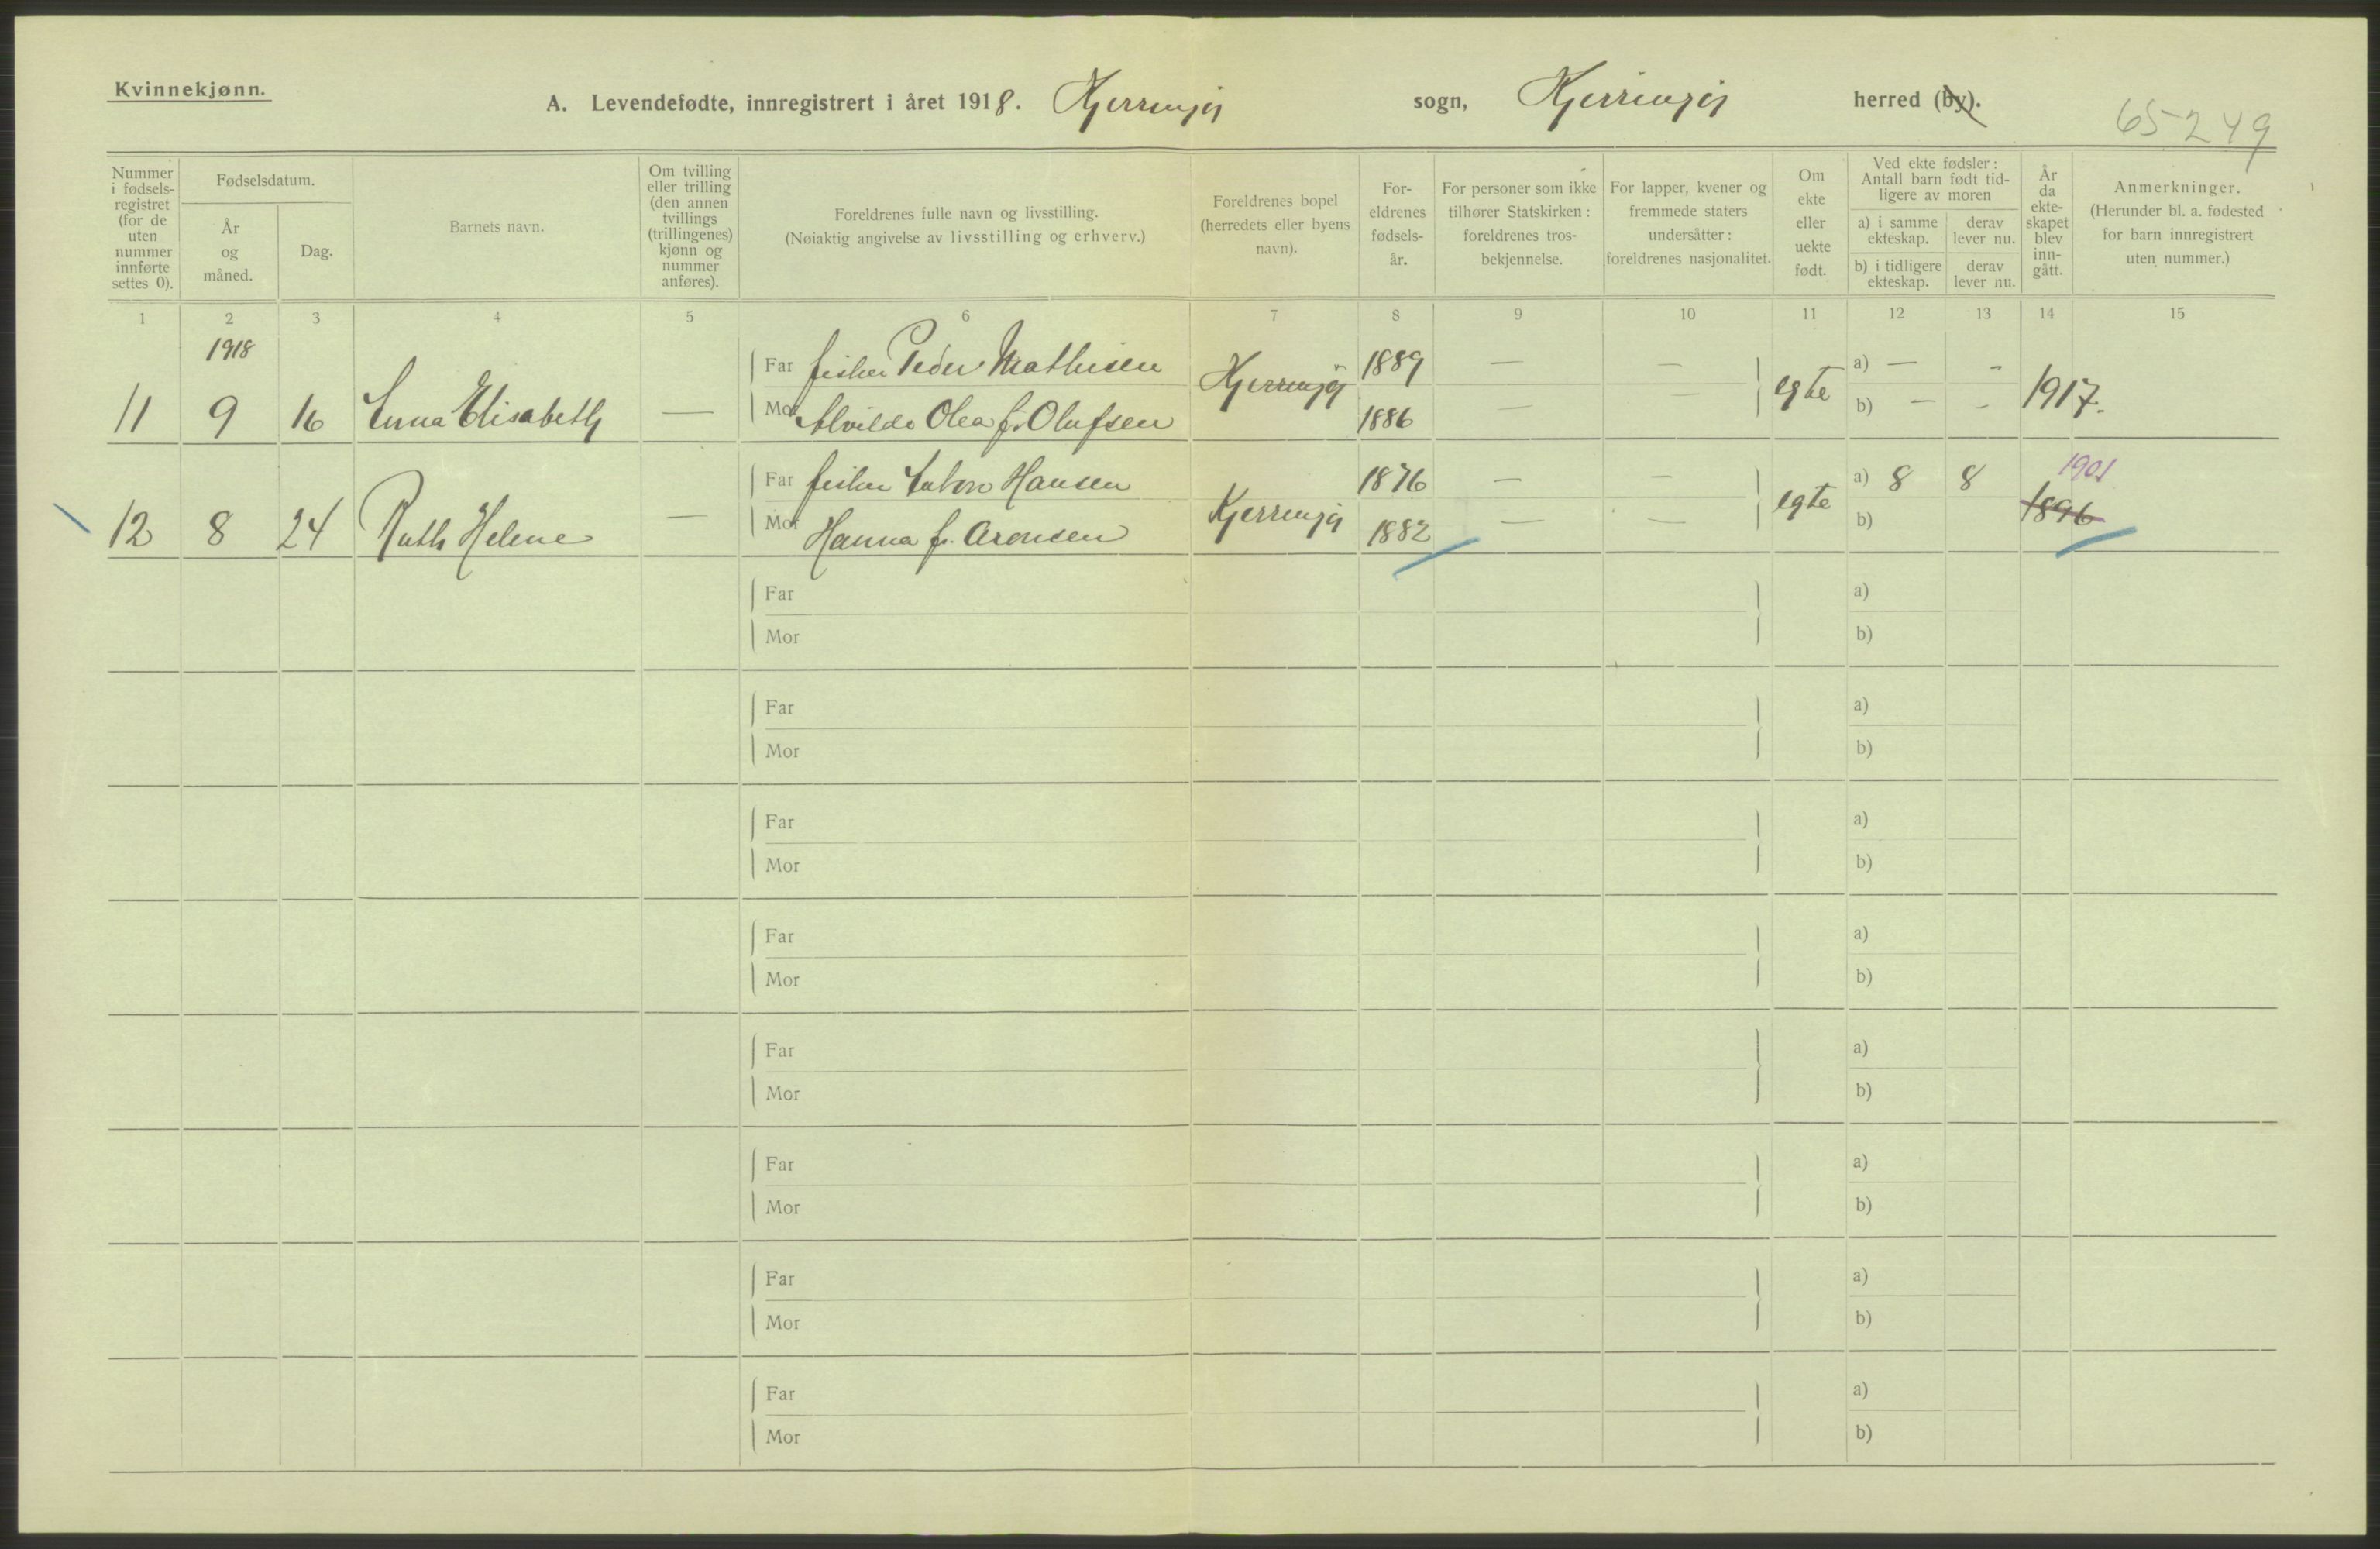 Kvinnekjønn.
A. Levendefødte, innregistrert i året 1918. Kjerringøy sogn, Kjerringøy herred (by).
65249
Nummer i fødsels-registret (for de uten nummer innførte settes 0).
Fødselsdatum.
År og måned.
Dag.
Barnets navn.
Om tvilling eller trilling (den annen tvillings (trillingenes) kjønn og nummer anføres).
Foreldrenes fulle navn og livsstilling.
(Nøiaktig angivelse av livsstilling og erhverv.)
Foreldrenes bopel (herredets eller byens navn).
For-eldrenes fødsels-år.
For personer som ikke tilhører Statskirken: foreldrenes tros-bekjennelse.
For lapper, kvener og fremmede staters undersåtter: foreldrenes nasjonalitet.
Om ekte eller uekte født.
Ved ekte fødsler: Antall barn født tid-ligere av moren
a) i samme ekteskap.
derav lever nu.
b) i tidligere ekteskap.
derav lever nu.
År da ekte-skapet blev inn-gått.
Anmerkninger.
(Herunder bl. a. fødested for barn innregistrert uten nummer.)
1 2 3 4 5 6 7 8 9 10 11 12 13 14 15
1918
Far fisker Peder Mathisen 1889 — — a) — -
11 9 16 Anna Elisabeth — Kjerringøy egte 1917.
Mor Alvilde Olea f. Olufsen 1886 — — b) — -
Far fisker Anton Hansen 1876 — — a) 8 8 1901
12 8 24 Ruth Helene — Kjerringøy egte 1896
Mor Hanna f. Aronsen 1882 — — b)
Far a)
Mor b)
Far a)
Mor b)
Far a)
Mor b)
Far a)
Mor b)
Far a)
Mor b)
Far a)
Mor b)
Far a)
Mor b)
Far a)
Mor b)